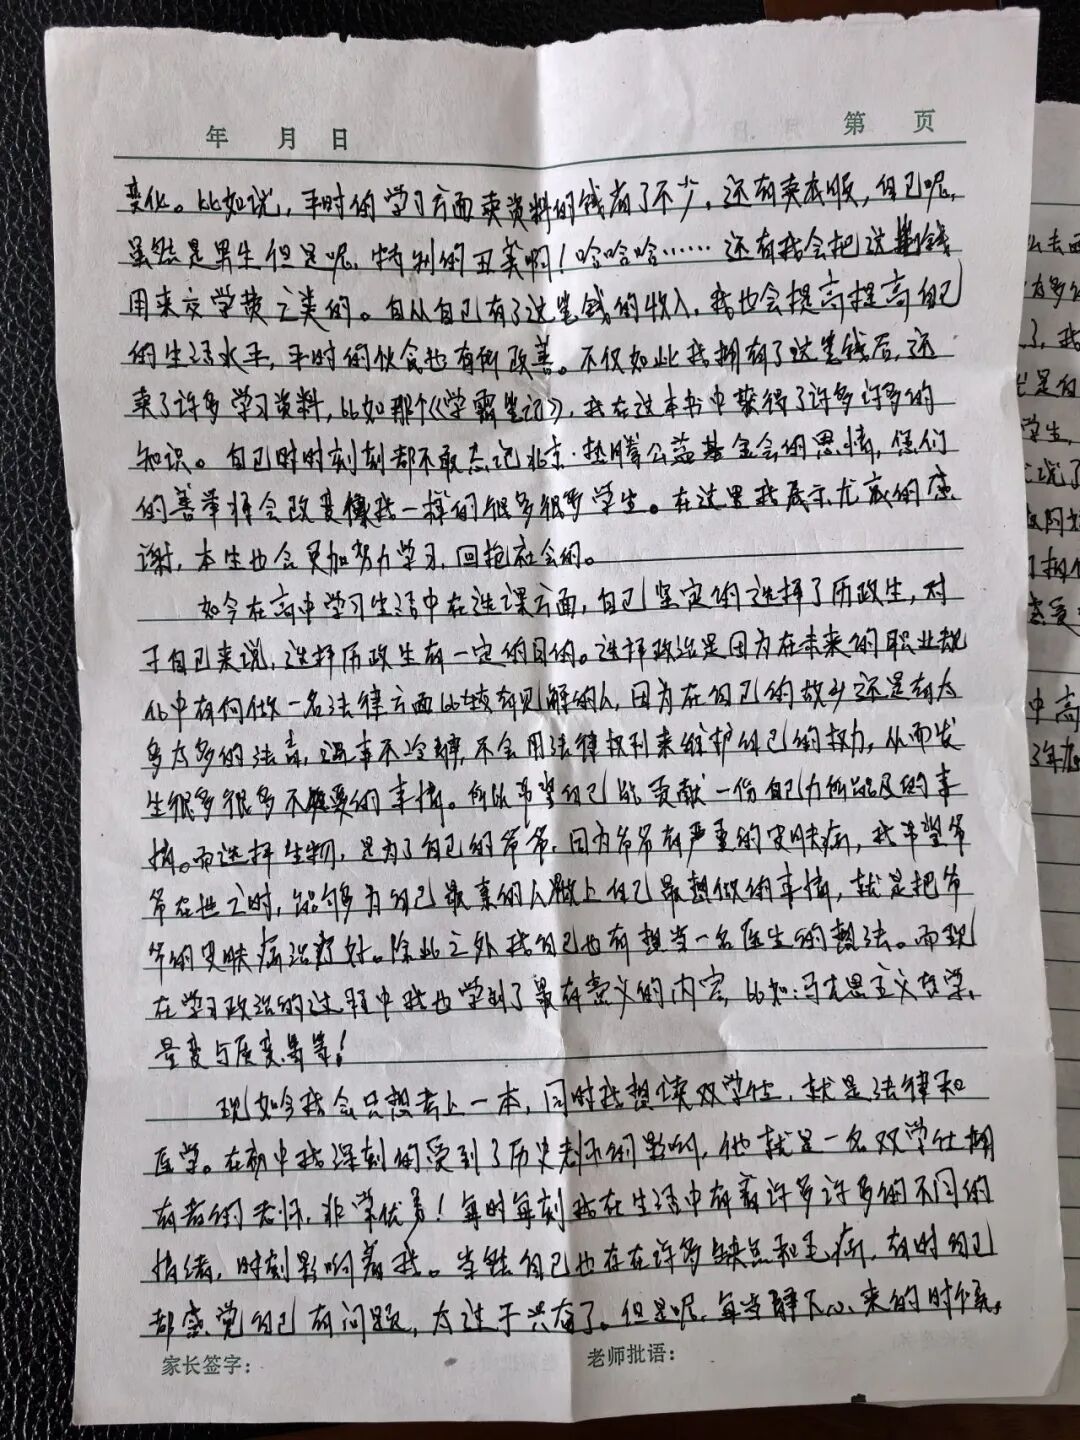 年 月 日
第 页
变化。比如说，平时的学习方面卖资料的钱省了不少，还有卖衣服，自己呢，
虽然是男生但是呢，特别的丑美啊！哈哈哈……还有我会把这些钱
用来交学费之类的。自从自己有了这笔钱的收入，我也会提高提高自己
的生活水平，平时的伙食也有所改善。不仅如此我拥有了这笔钱后，还
卖了许多学习资料，比如那个《学霸笔记》，我在这本书中获得了许多许多的
知识。自己时时刻刻都不敢忘记北京·热腾公益基金会的恩情，您们
的善举将会改变像我一样的很多很多学生。在这里我展示尤衷的感
谢，本生也会更加努力学习，回抱社会的。
如今在高中学习生活中在选课方面，自己坚定的选择了历政生，对
于自己来说，选择历政生有一定的目的。选择政治是因为在未来的职业规
化中有何做一名法律方面比较有见解的人，因为在自己的故乡还是有太
多太多的法盲，遇事不冷静，不会用法律权利来维护自己的权力，从而发
生很多很多不想要的事情。所以希望自己能贡献一份自己力所能及的事
情。而选择生物，是为了自己的爷爷，因为爷爷有严重的皮肤病，我希望爷
爷在世之时，能够为自己最亲的人做上自己最想做的事情，就是把爷
爷的皮肤病治疗好。除此之外我自己也有想当一名医生的想法。而现
在学习政治的过程中我也学到了最有意义的内容，比如：马克思主义哲学、
量变与质变等等！
现如今我会只想考上一本，同时我想读双学位，就是法律和
医学。在初中我深刻的受到了历史老师的影响，他就是一名双学仕拥
有者的老师，非常优秀！每时每刻我在生活中有着许多许多的不同的
情绪，时刻影响着我。当然自己也存在许多缺点和毛病，有时自己
都感觉自己有问题，太过于兴奋了。但是呢，每当静下心来的时候，
家长签字：
老师批语：